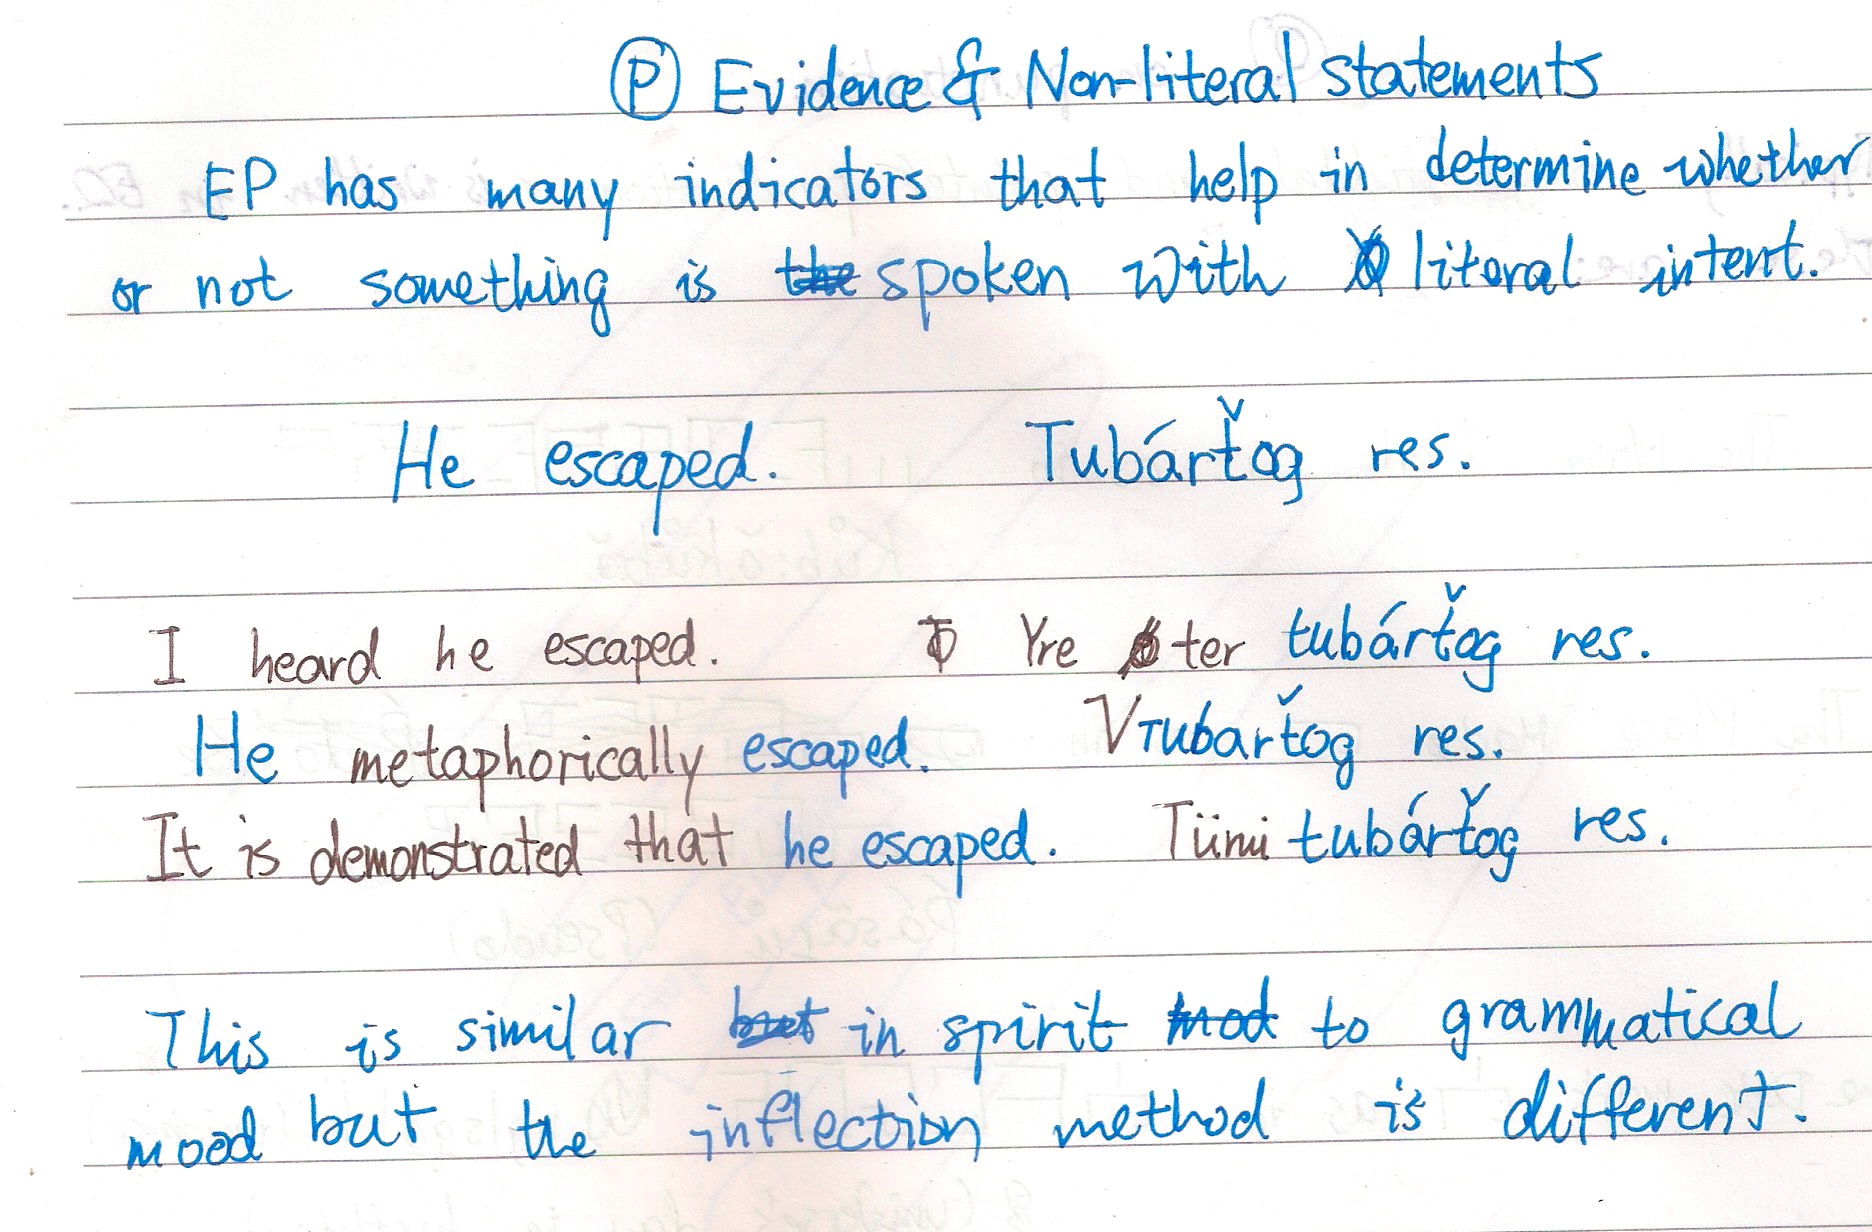 Ⓟ Evidence & Non-literal statements
EP has many indicators that help in determine whether
or not something is the spoken with literal intent.
He escaped. Tubárťog res.
I heard he escaped. Yre ter tubárťog res.
He metaphorically escaped. Vтubarťog res.
It is demonstrated that he escaped. Tüni tubárťog res.
This is similar but in spirit mod to grammatical
mood but the inflection method is different.